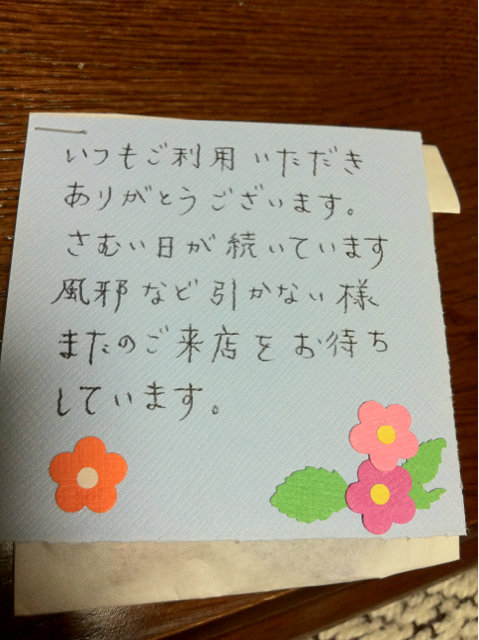 いつもご利用いただき
ありがとうございます。
さむい日が続いています
風邪など引かない様
またのご来店をお待ち
しています。